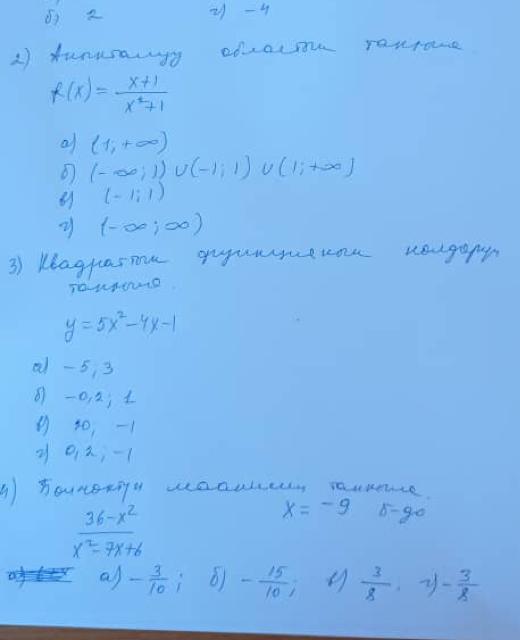 б) 2 г) -4
2) Аныкталуу областын тапкыла.
f(x) = \frac{x+1}{x^2+1}
а) (1; +∞)
б) (-∞; 1) ∪ (-1; 1) ∪ (1; +∞)
в) (-1; 1)
г) (-∞; ∞)
3) Квадраттык функциянын нолдорун
тапкыла.
y = 5x² - 4x - 1
а) -5; 3
б) -0,2; 1
в) 20, -1
г) 0,2; -1
4) Бөлчөктүн маанисин тапкыла.
\frac{36-x^2}{x^2-7x+6} x = -9 б-до
а) -\frac{3}{10}; б) -\frac{15}{10}; в) \frac{3}{8}. г) -\frac{3}{8}